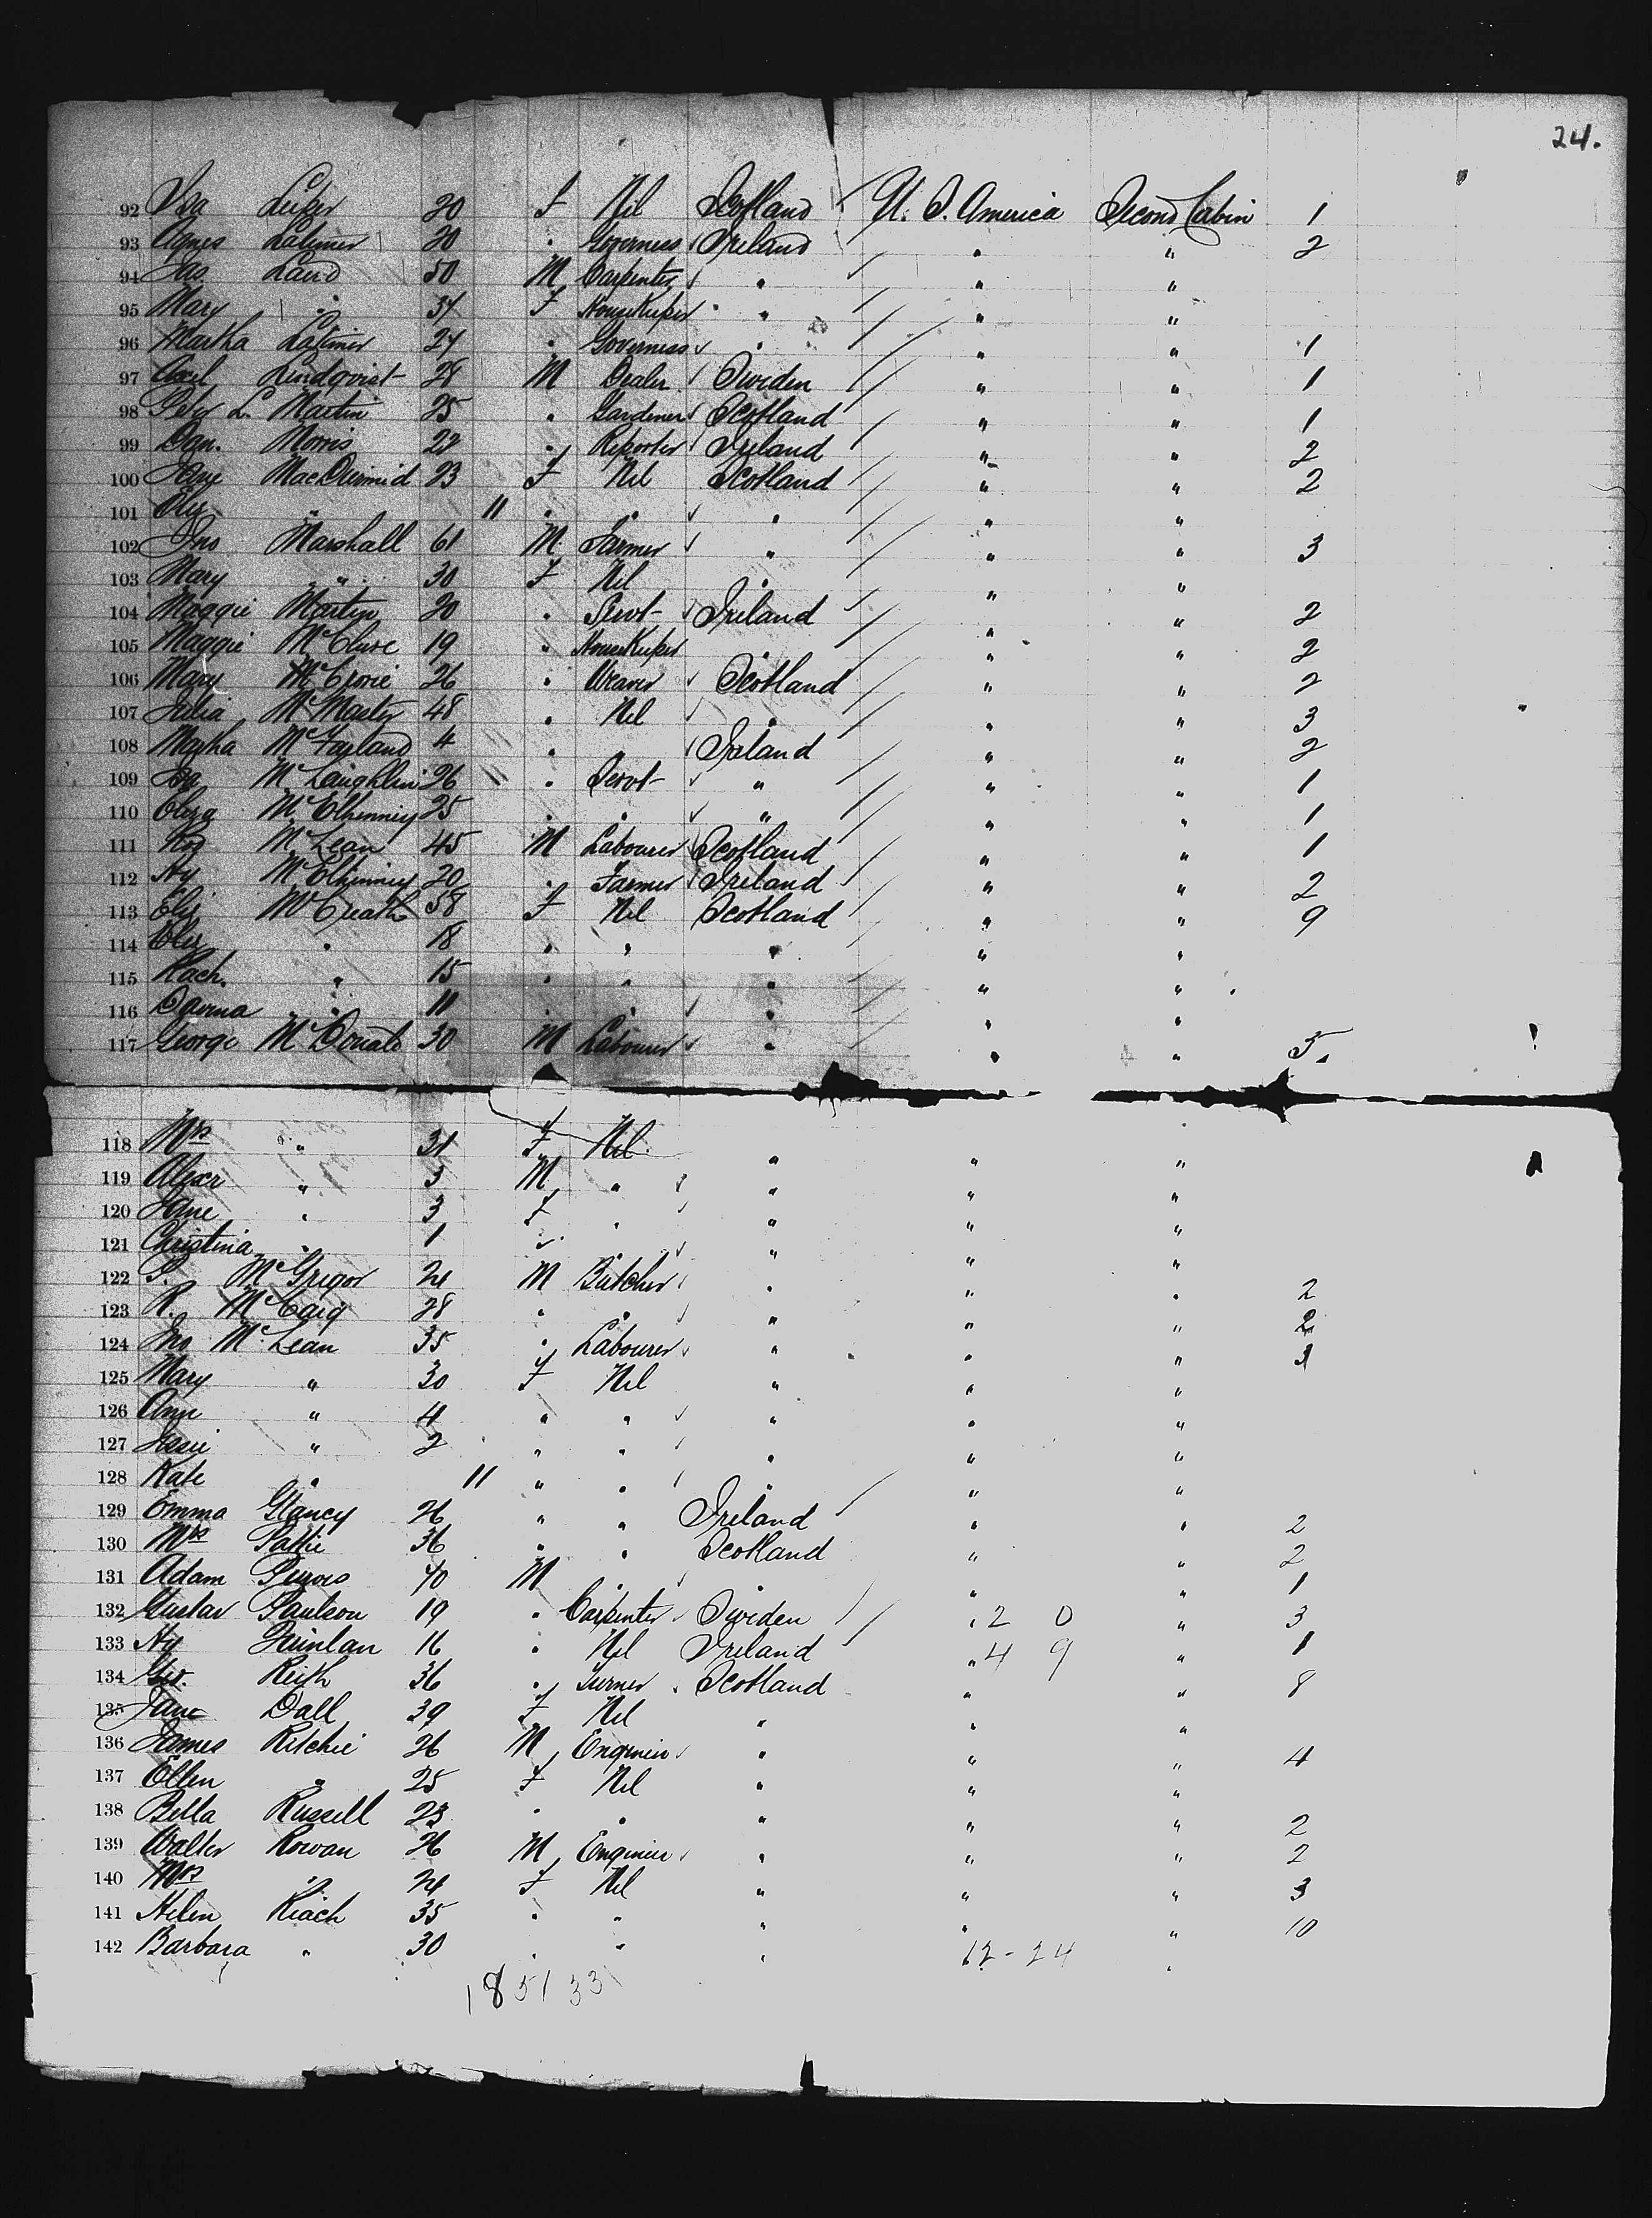 24.
92 Isa 20 F Nil Scotland U. S. America Second Cabin 1
93 Agnes Latimer 20 " Governess Ireland " " 2
94 Jas Laird 50 M Carpenter " " "
95 Mary " 34 F HouseKeeper " " "
96 Martha Latimer 24 " Governess " " " 1
97 Axel Lindqvist 28 M Dealer Sweden " " 1
98 Peter L. Martin 25 " Gardener Scotland " " 1
99 Dan. Morris 22 " Reporter Ireland " " 2
100 Jane MacDiermid 23 F Nil Scotland " " 2
101 Eliz " 11 " " " " "
102 Jno Marshall 61 M Farmer " " " 3
103 Mary " 30 F Nil " " "
104 Maggie Martin 20 " Servt Ireland " " 2
105 Maggie McClure 19 " HouseKeeper " " " 2
106 Mary McCrorie 26 " Weaver Scotland " " 2
107 Julia McMaster 48 " Nil " " " 3
108 Martha McFarland 4 " Ireland " " 2
109 Isa McLaughlin 26 " Servt " " " 1
110 Eliza McElhinney 25 " " " " " 1
111 McLean 45 M Labourer Scotland " " 1
112 Hy McElhinney 20 " Farmer Ireland " " 2
113 Eliz McCreath 58 F Nil Scotland " " 9
114 Eliz " 18 " " " " "
115 Rach. " 15 " " " " "
116 " 11 " " " " "
117 George McDonald 30 M Labourer " " " 5.
118 Mrs " 31 F Nil " " "
119 Alexr " 3 M " " " "
120 Jane " 3 F " " " "
121 Christina " 1 " " " " "
122 P. McGrigor 24 M Butcher " " " 2
123 R. McCaig 28 " " " " " 2
124 Jno McLean 35 " Labourer " " "
125 Mary " 30 F Nil " " "
126 Ann " 4 " " " " "
127 Jessie " 2 " " " " "
128 Kate " 11 " " " " "
129 Emma Glancy 26 " " Ireland " " 2
130 Mrs Pattie 36 " " Scotland " " 2
131 Adam 40 M " " " " 1
132 Gustav Paulson 19 " Carpenter Sweden " 2 0 " 3
133 Hy Quinlan 16 " Nil Ireland " 4 9 " 1
134 Geo. Keith 36 " Turner Scotland " " 8
135 Jane Dall 39 F Nil " " "
136 James Ritchie 26 M Engineer " " " 4
137 Ellen " 25 F Nil " " "
138 Bella Russell 23 " " " " " 2
139 Walter Rowan 26 M Engineer " " " 2
140 Mrs " 24 F Nil " " " 3
141 Helen Riach 35 " " " " " 10
142 Barbara " 30 " " " 12-24 "
185133